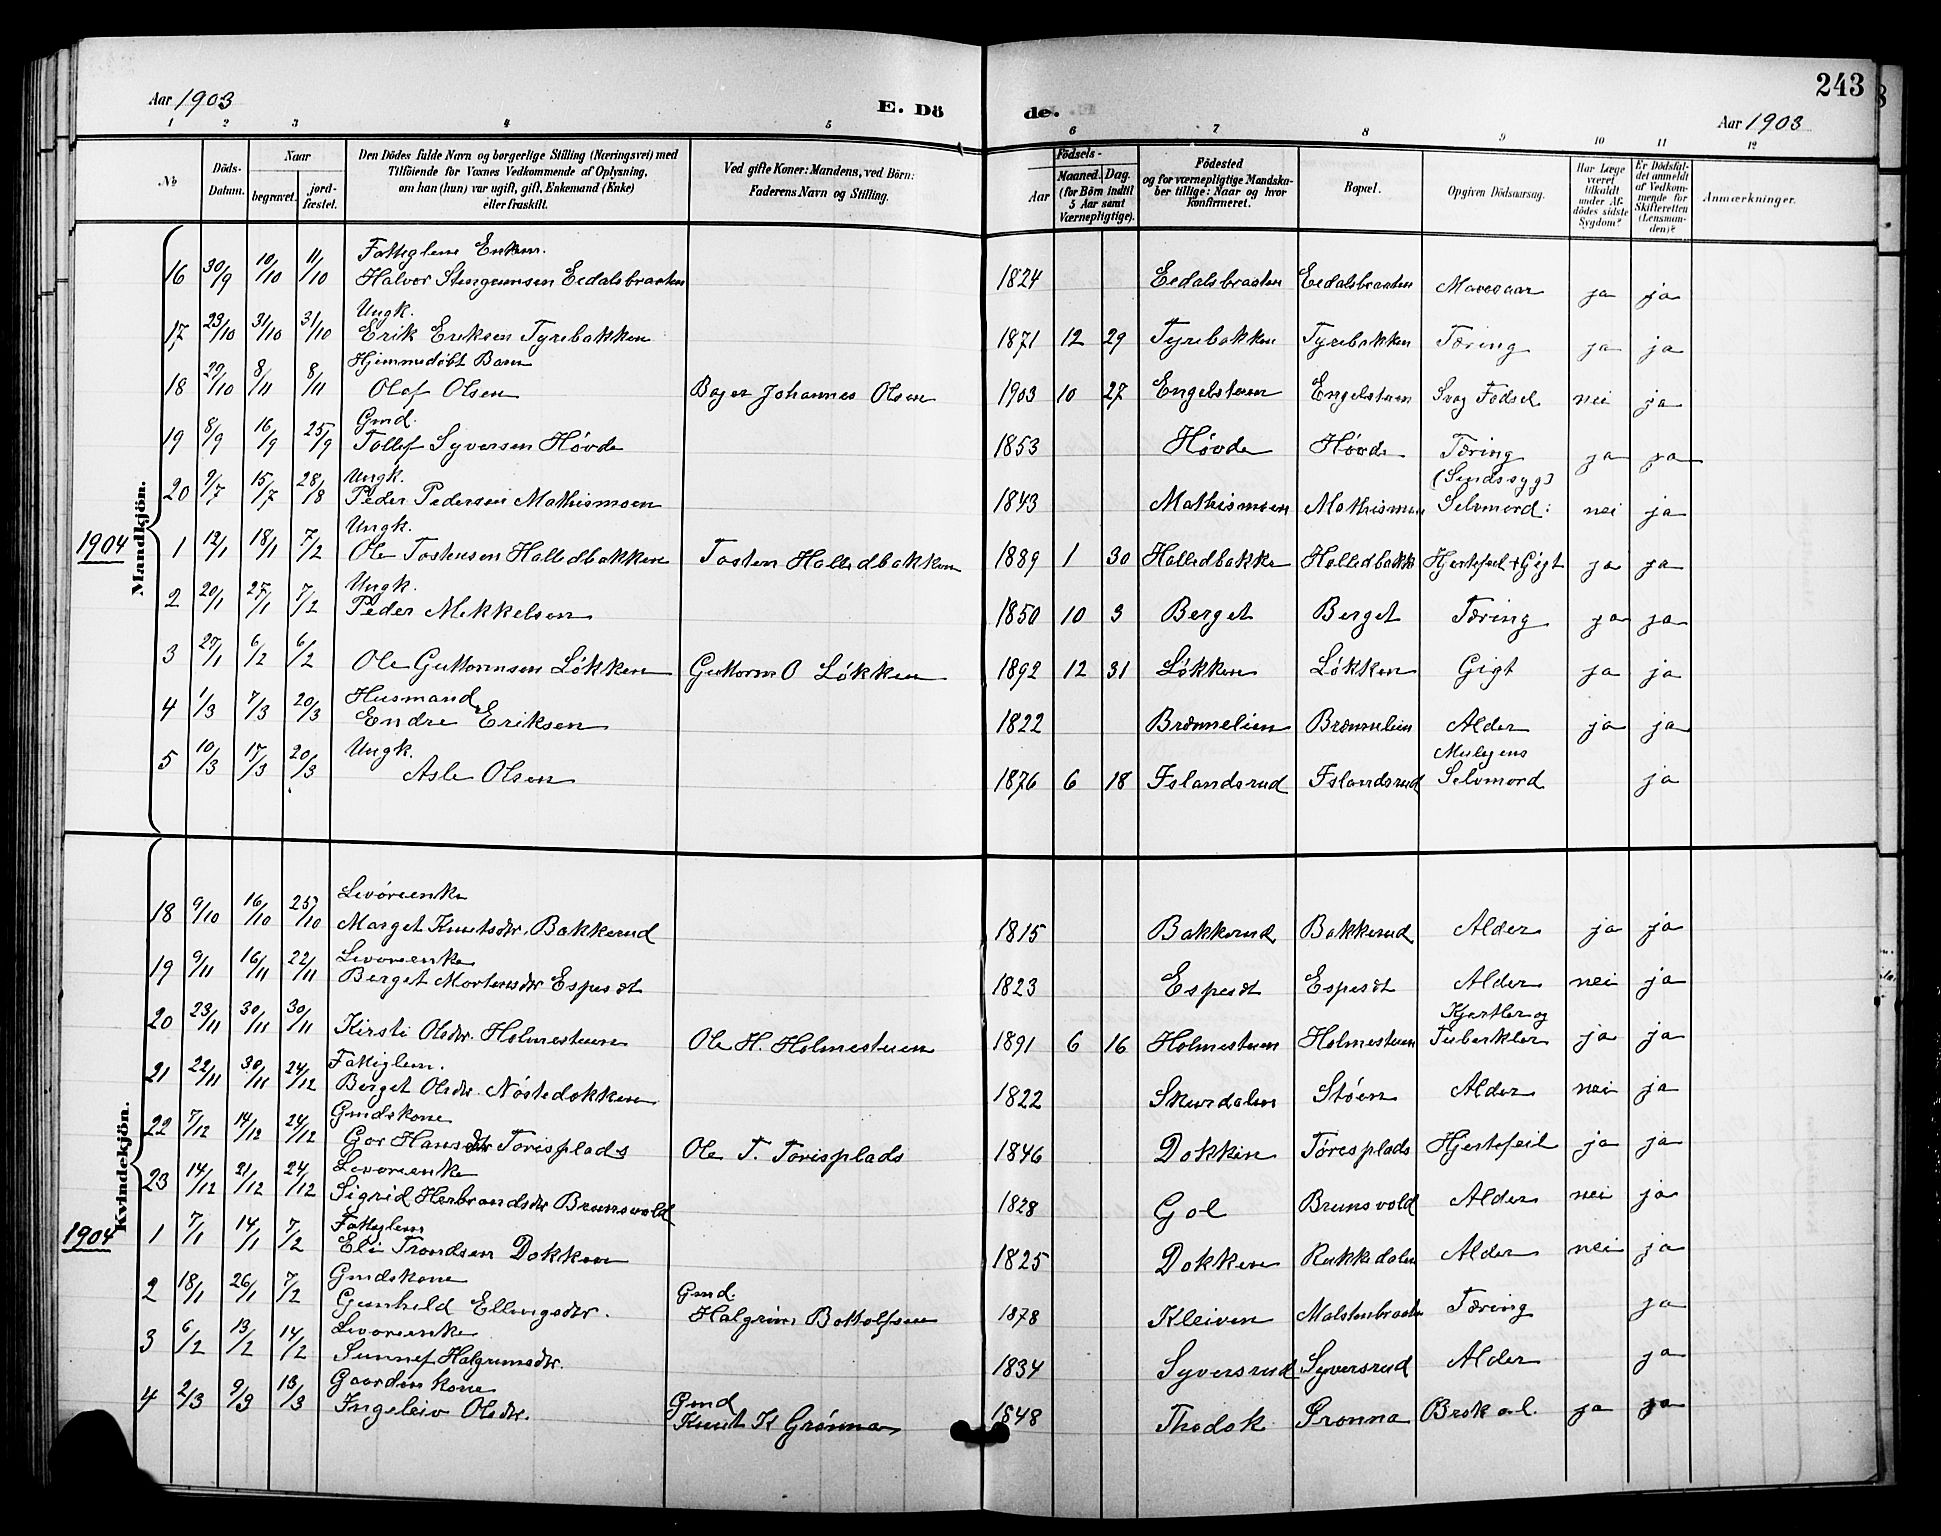 243
Aar 1903 E. Dö de. Aar 1903
1 2 3 4 5 6 7 8 9 10 11 12
No
Döds-Datum.
Naar
begravet.
jord-fæstet.
Den Dödes fulde Navn og borgerlige Stilling (Næringsvei) med
Tilföiende for Voxnes Vedkommende af Oplysning,
om han (hun) var ugift, gift, Enkemand (Enke)
eller fraskilt.
Ved gifte Koner: Mandens, ved Börn:
Faderens Navn og Stilling.
Födsels-
Aar
Maaned. Dag.
(for Börn indtil
5 Aar samt
Værnepligtige).
Födested
og for værnepligtige Mandska-
ber tillige: Naar og hvor
Konfirmeret.
Bopæl.
Opgiven Dödsaarsag.
Har Læge
været
tilkaldt
under Af-
dödes sidste
Sygdom?
Er Dödsfal-
det anmeldt
af Vedkom-
mende for
Skifteretten
(Lensman-
den)?
Anmærkninger.
Mandkjön.
Fattiglem Enkem.
16 30/9 10/10 11/10 Halvor Stengrimsen Eedalsbraaten 1824 Eedalsbraaten Eedalsbraaten Mavesaar ja ja
Ungk.
17 23/10 31/10 31/10 Erik Eriksen Tyrebakken 1871 12 29 Tyrebakken Tyrebakken Tæring ja ja
Hjemmedøbt Barn
18 29/10 8/11 8/11 Olaf Olsen Bager Johannes Olsen 1903 10 27 Engelstuen Engelstuen Svag Fødsel nei ja
Gmd.
19 8/9 16/9 25/9 Tollef Syversen Høvde 1853 Høvde Høvde Tæring ja ja
Ungk. (Sindssyg)
20 9/7 15/7 28/8 Peder Pedersen Mathismoen 1843 Mathismoen Mathismoen Selvmord: nei ja
1904
Ungk.
1 12/1 18/1 7/2 Ole Tostensen Halledbakken Tosten Halledbakken 1889 1 30 Halledbakke Halledbakk Hjertefeil + Gigt ja ja
Ungk.
2 20/1 27/1 7/2 Peder Mekkelsen 1850 10 3 Berget Berget Tæring ja ja
3 27/1 6/2 6/2 Ole Guttormsen Løkken Guttorm O Løkken 1892 12 31 Løkken Løkken Gigt ja ja
Husmand
4 1/3 7/3 20/3 Endre Eriksen 1822 Brønnelien Brønnelien Alder ja ja
Ungk. Muligens
5 10/3 17/3 20/3 Asle Olsen 1876 6 18 Islandsrud Islandsrud Selvmord ja
Kvindekjön.
Levøreenke
18 9/10 16/10 25/10 Marget Knutsdtr. Bakkerud 1815 Bakkerud Bakkerud Alder ja ja
Levøreenke
19 9/11 16/11 22/11 Berget Mortensdtr Espesdt 1823 Espesdt Espesdt Alder nei ja
Kjertler og
20 23/11 30/11 30/11 Kirsti Olsdtr. Holmestuen Ole H. Holmestuen 1891 6 16 Holmestuen Holmestuen Tuberkler ja ja
Fattiglem.
21 22/11 30/11 24/12 Berget Olsdtr. Nøstedokken 1822 Skurdalen Støen Alder nei ja
Gmdskone
22 7/12 14/12 24/12 Gor Hansdtr Torisplads Ole T. Torisplads 1846 Dokken Tørisplads Hjertefeil ja ja
Levøreenke
23 14/12 21/12 24/12 Sigrid Herbrandsdtr Brunsvold 1828 Gol Brunsvold Alder nei ja
1904
Fattiglem
1 7/1 14/1 7/2 Eli Trondsen Dokken 1825 Dokken Rukkedalen Alder nei ja
Gmdskone Gmd.
2 18/1 26/1 7/2 Gunhild Ellingsdtr. Halgrim Bottolfsen 1878 Kleiven Malstenbraaten Tæring ja
Levøreenke
3 6/2 13/2 14/2 Sunnef Halgrimsdtr. 1834 Syversrud Syversrud Alder ja
Gaardm kone Gmd
4 2/3 9/3 13/3 Ingeleiv Olsdtr. Knut K Grønna 1848 Thodok Grønna Brok o.l. ja ja